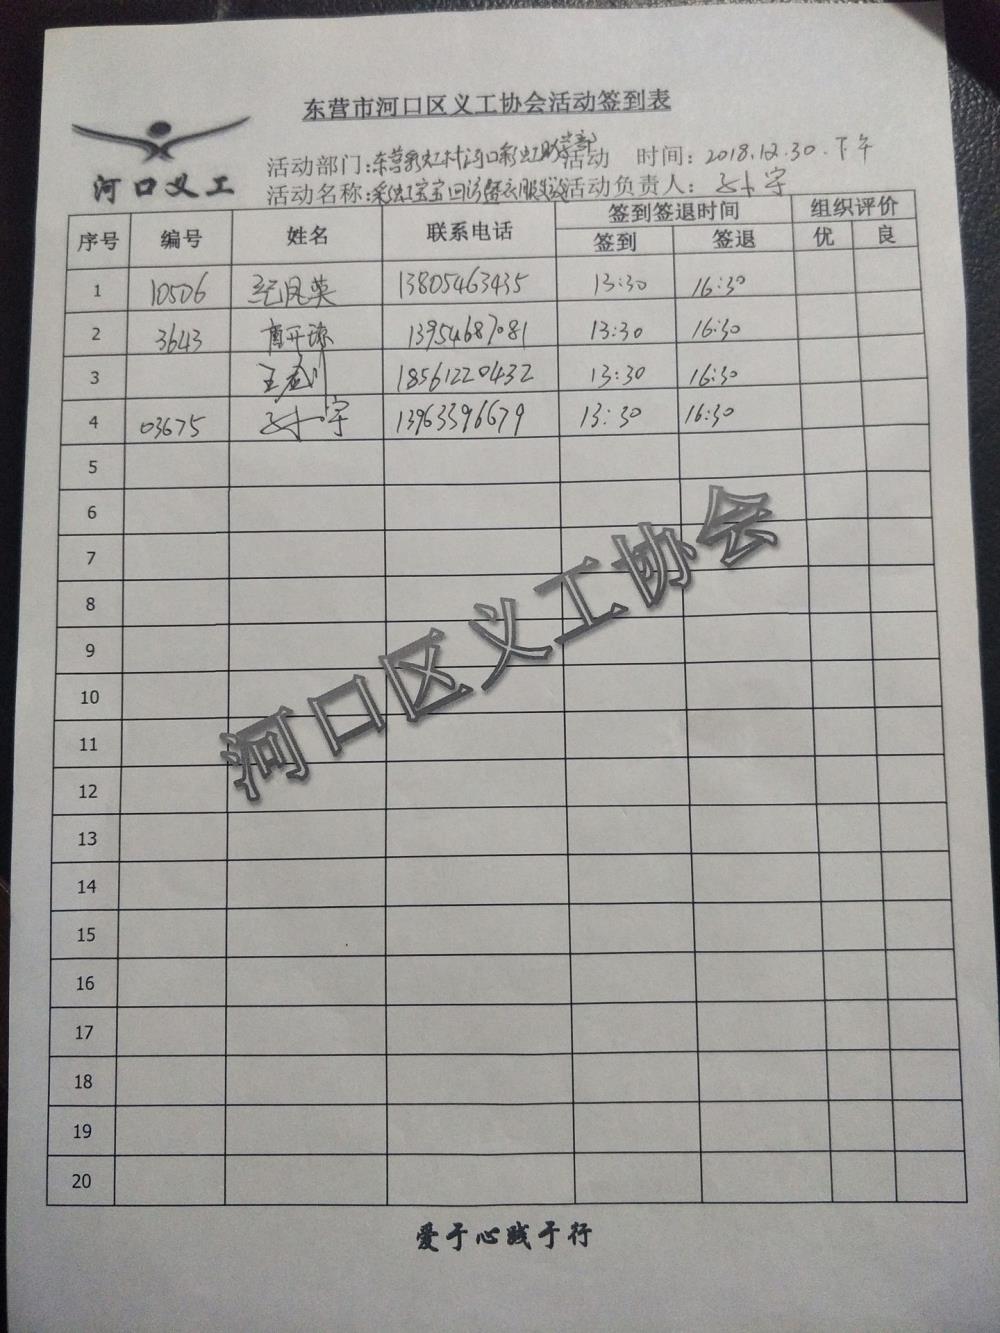 东营市河口区义工协会活动签到表
河口义工
活动部门:东营彩虹村河口彩虹助学部 活动 时间: 2018.12.30.下午
活动名称:彩虹宝宝回访 活动负责人:
序号 编号 姓名 联系电话 签到签退时间 组织评价
签到 签退 优 良
1 10506 纪凤英 13805463435 13:30 16:30
2 3643 13954687081 13:30 16:30
3 18561220432 13:30 16:30
4 03675 13963396679 13:30 16:30
5
6
7
8
9
10
11
12
13
14
15
16
17
18
19
20
河口区义工协会
爱于心践于行